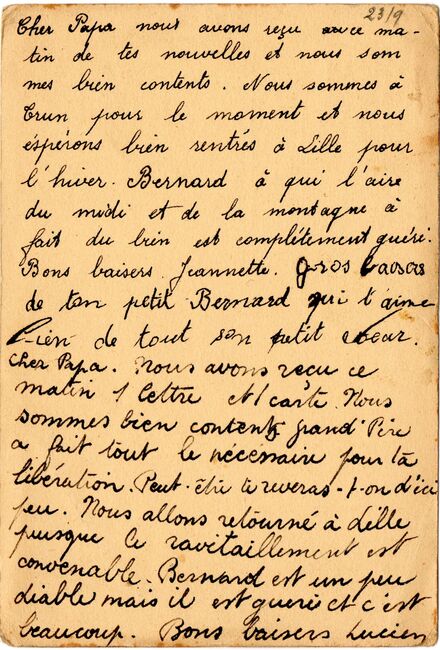 23/9
Cher Papa nous avons reçu ce ma-
tin de tes nouvelles et nous som
mes bien contents. Nous sommes à
Trun pour le moment et nous
éspérons bien rentrés à Lille pour
l'hiver. Bernard à qui l'aire
du midi et de la montagne à
fait du bien est complétement guéri.
Bons baisers. Jeannette. gros baisers
de ton petit Bernard qui t'aime
bien de tout son petit coeur.
Cher Papa. Nous avons recu ce
matin 1 lettre et 1 carte. Nous
sommes bien contents grand' Père
a fait tout le nécéssaire pour ta
libération. Peut-être te reveras-t-on d'ici
peu. Nous allons retourné à Lille
puisque le ravitaillement est
convenable. Bernard est un peu
diable mais il est gueri et c'est
beaucoup. Bons baisers Lucien